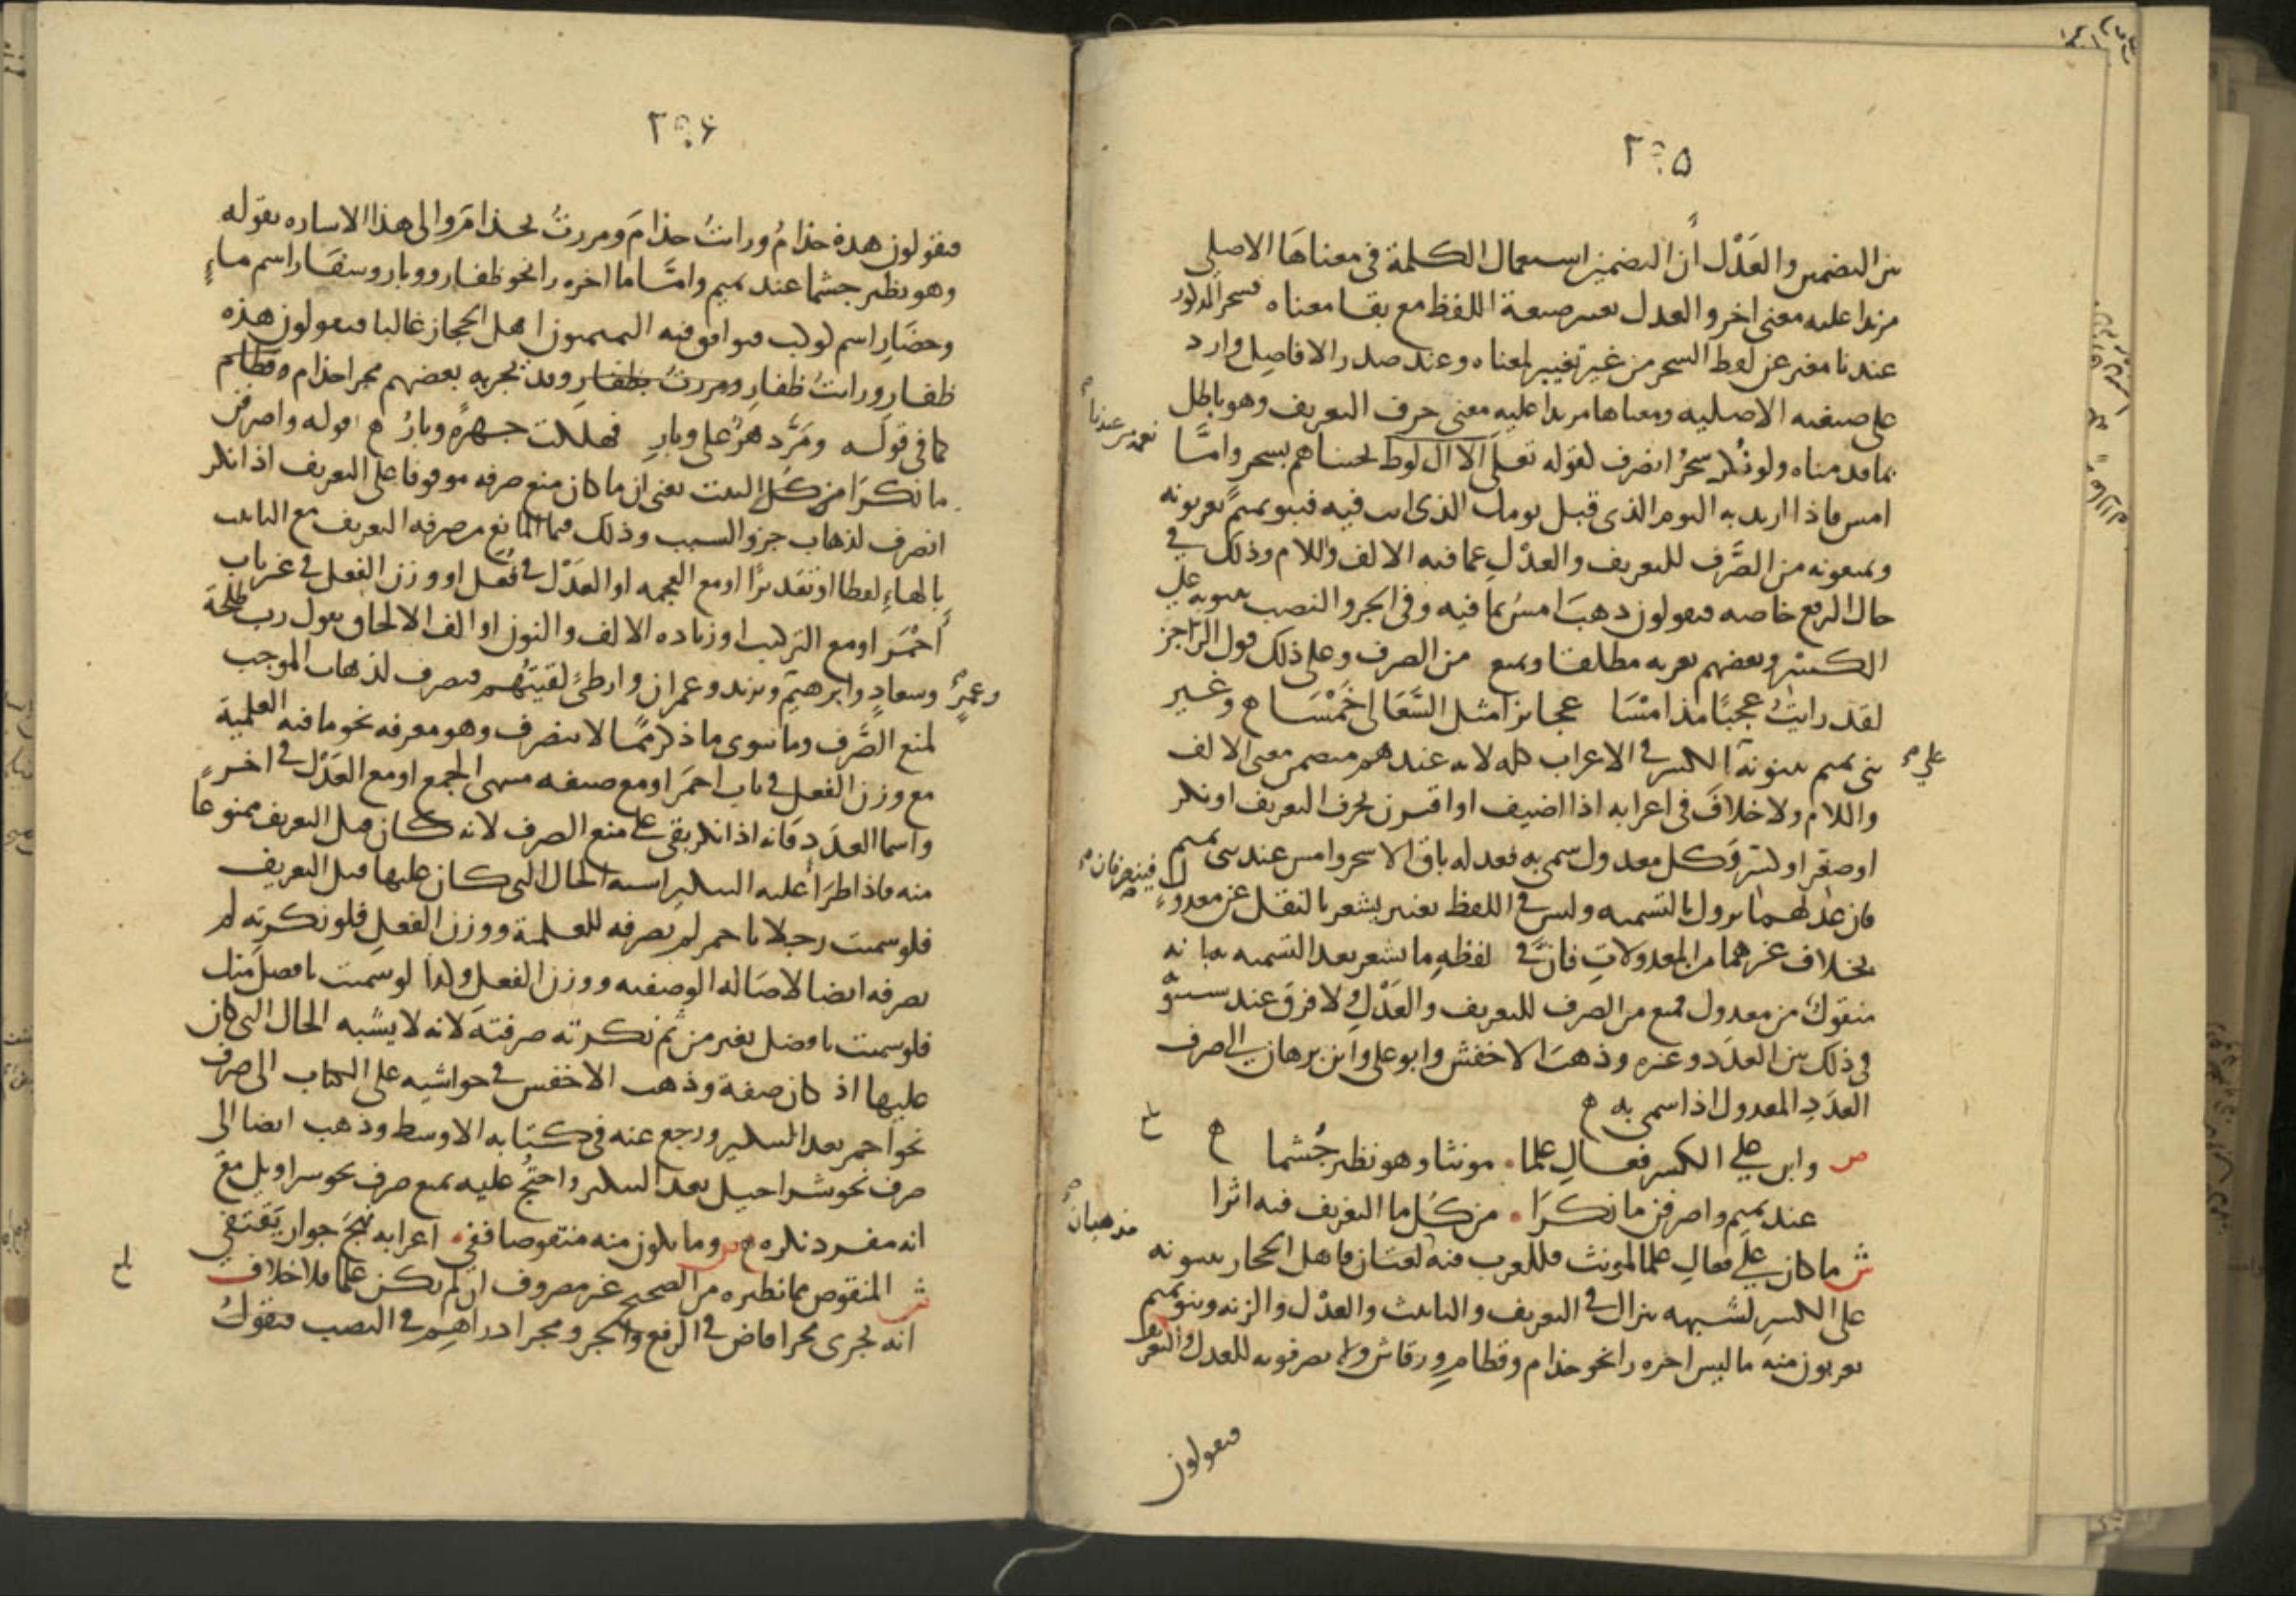 ٢٠٥
بين التضمين والعَدْل أن التضمين استعمال الكلمة في معناهَا الاصلي
مزيدا عليه معنى اخر والعدل تغيير صيغة اللفظ مع بقا معناه فسحر المذكور
عندنا مغير عن لفظ السحر من غير تغيير لمعناه وعند صدر الافاضل وارد
على صيغته الاصليه ومعناها مزيدا عليه معنى حرف التعريف وهو باطل
بما قدمناه ولو نُكر سحرٌ انصرف لقوله تعلى الا ال لوط نجيناهم بسحر وامَّا
امس فاذا اريد به اليوم الذي قبل يومك الذي انت فيه فبنو تميمٍ يعربونه
ويمنعونه من الصَّرف للتعريف والعدْلِ عما فيه الالف واللام وذلك في
حال الرفع خاصه فيقولون ذهبَ امسُ بما فيه وفي الجر والنصب يبنونه على
الكسر وبعضهم يعربه مطلقا ويمنع من الصرف وعلى ذلك قول الراجز
لقد رايتُ عجبًا مذ امْسَا عجايزا مثل السَّعَالى خَمْسَا ه وغير
بني تميم يبنونه الكسر في الاعراب كله لانه عندهم متضمن معنى الالف
على
واللام ولا خلافَ في اعرابه اذا اضيف او اقترن بحرف التعريف او نكر
او صغر او كسر وكل معدول سمي به فعدله باق الا سحر وامس عند بني تميم
فينصرفان
فان عدلهما يزول بالتسميه وليس في اللفظ تغيير يشعر بالنقل عن معدولٍ
بخلاف غيرهما من المعدولاتِ فانَّ في لفظهِ ما يشعر بعد التسميه به بانه
منقولٌ من معدول فمنع من الصرف للتعريف والعَدْلِ ولا فرق عند سيبو
في ذلك بين العدَد وغيره وذهبَ الاخفش وابو علي وابن برهان الى صرف
العدَدِ المعدول اذا سمي به ه
ص وابن على الكسر فعالِ علما مونثا وهو نظير جُشما ه
عند تميم واصرفن ما نكرَا من كل ما التعريف فيه اثرا
ش ما كان على فعالِ علما لمونث فللعرب فيه لغتان فاهل الحجاز يبنونه
مذهبان
على الكسر لشبهه بنزال في التعريف والتانيث والعدْل والزنه وبنو تميم
يعربون منه ما ليس اخره را نحو حذام وقطامِ ورقاش ولا يصرفونه للعدل والتعر
فيقولون
٢٠۶
فيقولون هذه حذامُ ورايتُ حذامَ ومررتُ بحذامَ والى هذا الاشاره بقوله
وهو نظير جشما عند تميم وامَّا ما اخره را نحو ظفار ووبار وسفَار اسم ماءٍ
وحضَارِ اسم كوكب فيوافق فيه التميميون اهل الحجاز غالبا فيقولون هذه
ظفارِ ورايتُ ظفارِ ومررتُ بظفارِ وقد يجريه بعضهم مجرا حذام وقطام
كما في قوله ومَرَّ دهرٌ على وبارِ فهلكت جهرةً وبارُ ه قوله واصرفن
ما نكرَا من كل البيت يعني ان ما كان منع صرفه موقوفا على التعريف اذا نكر
انصرف لذهاب جزو السبب وذلك فيما المانع من صرفه التعريف مع التانيث
بالهاءِ لفظا او تقديرًا او مع العجمه او العَدْل في فُعَل او وزن الفعل في غير باب
أحْمَر او مع التركيب او زياده الالف والنون او الف الالحاق يقول رب طلحة
وعمرٍ وسعادٍ وابرهيم ويزيد وعمران وارطىً لقيتُهُم فيصرف لذهاب الموجب
لمنع الصَّرف وما سوى ما ذكر ممَّا لا ينصرف وهو معرفه نحو ما فيه العلمية
مع وزن الفعل في باب احمَر او مع صيغه منتهى الجمع او مع العَدْل في اخرٍ
واسما العدَد فانه اذا نكر بقي على منع الصرف لانه كان قبل التعريف ممنوعًا
منه فاذا طرَأ عليه التنكير اشبه الحال التي كان عليها قبل التعريف
فلو سميت رجلا باحمر لم يصرفه للعلمية ووزن الفعل فلو نكرته لم
يصرفه ايضا لاصاله الوصفيه ووزن الفعل وكذا لو سميت بافضل منك
فلو سميت بافضل بغير من ثم نكرته صرفتهَ لانه لا يشبه الحال التي كان
عليها اذ كان صفة وذهب الاخفش في حواشيه على الكتاب الى صرف
نحو احمر بعد التنكير ورجع عنه في كتابه الاوسط وذهب ايضا الى
صرف نحو شراحيل بعد التنكير واحتجَّ عليه بمنع صرف نحو سراويل مع
انه مفرد نكره ه ص وما يكون منه منقوصا ففي اعرابه نهجَ جوارٍ يَقْتفي
ش المنقوص مما نظيره من الصحيح غير مصروف ان لم يكن علما فلا خلاف
انه يجري مجرا قاض في الرفع والجر ومجرا دراهِم في النصب فيقولُ